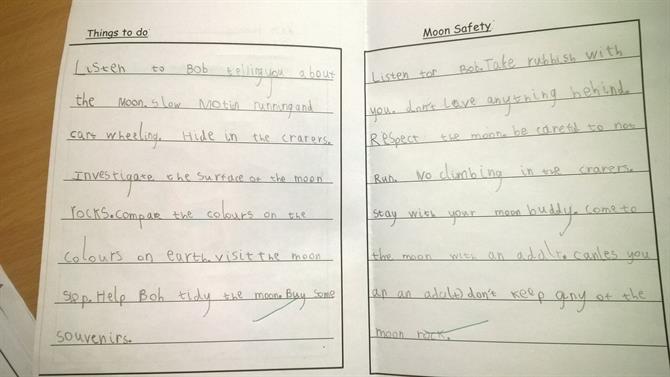 Things to do
Listen to Bob telling you about
the moon. slow motin running and
cart wheeling. Hide in the crarers.
Investigate the surface of the moon
rocks. compare the colours on the
colours on earth. visit the moon
sop. Help Bob tidy the moon. Buy some
souvenirs.
Moon Safety
Listen for Bob. Take rubbish with
you. don't leave anything behind.
Respect the moon. be carefd to not
Run. No climbing in the crarers.
Stay with your moon buddy. come to
the moon with an addlt. canles you
ar an adalt) don't keep any of the
moon rock.